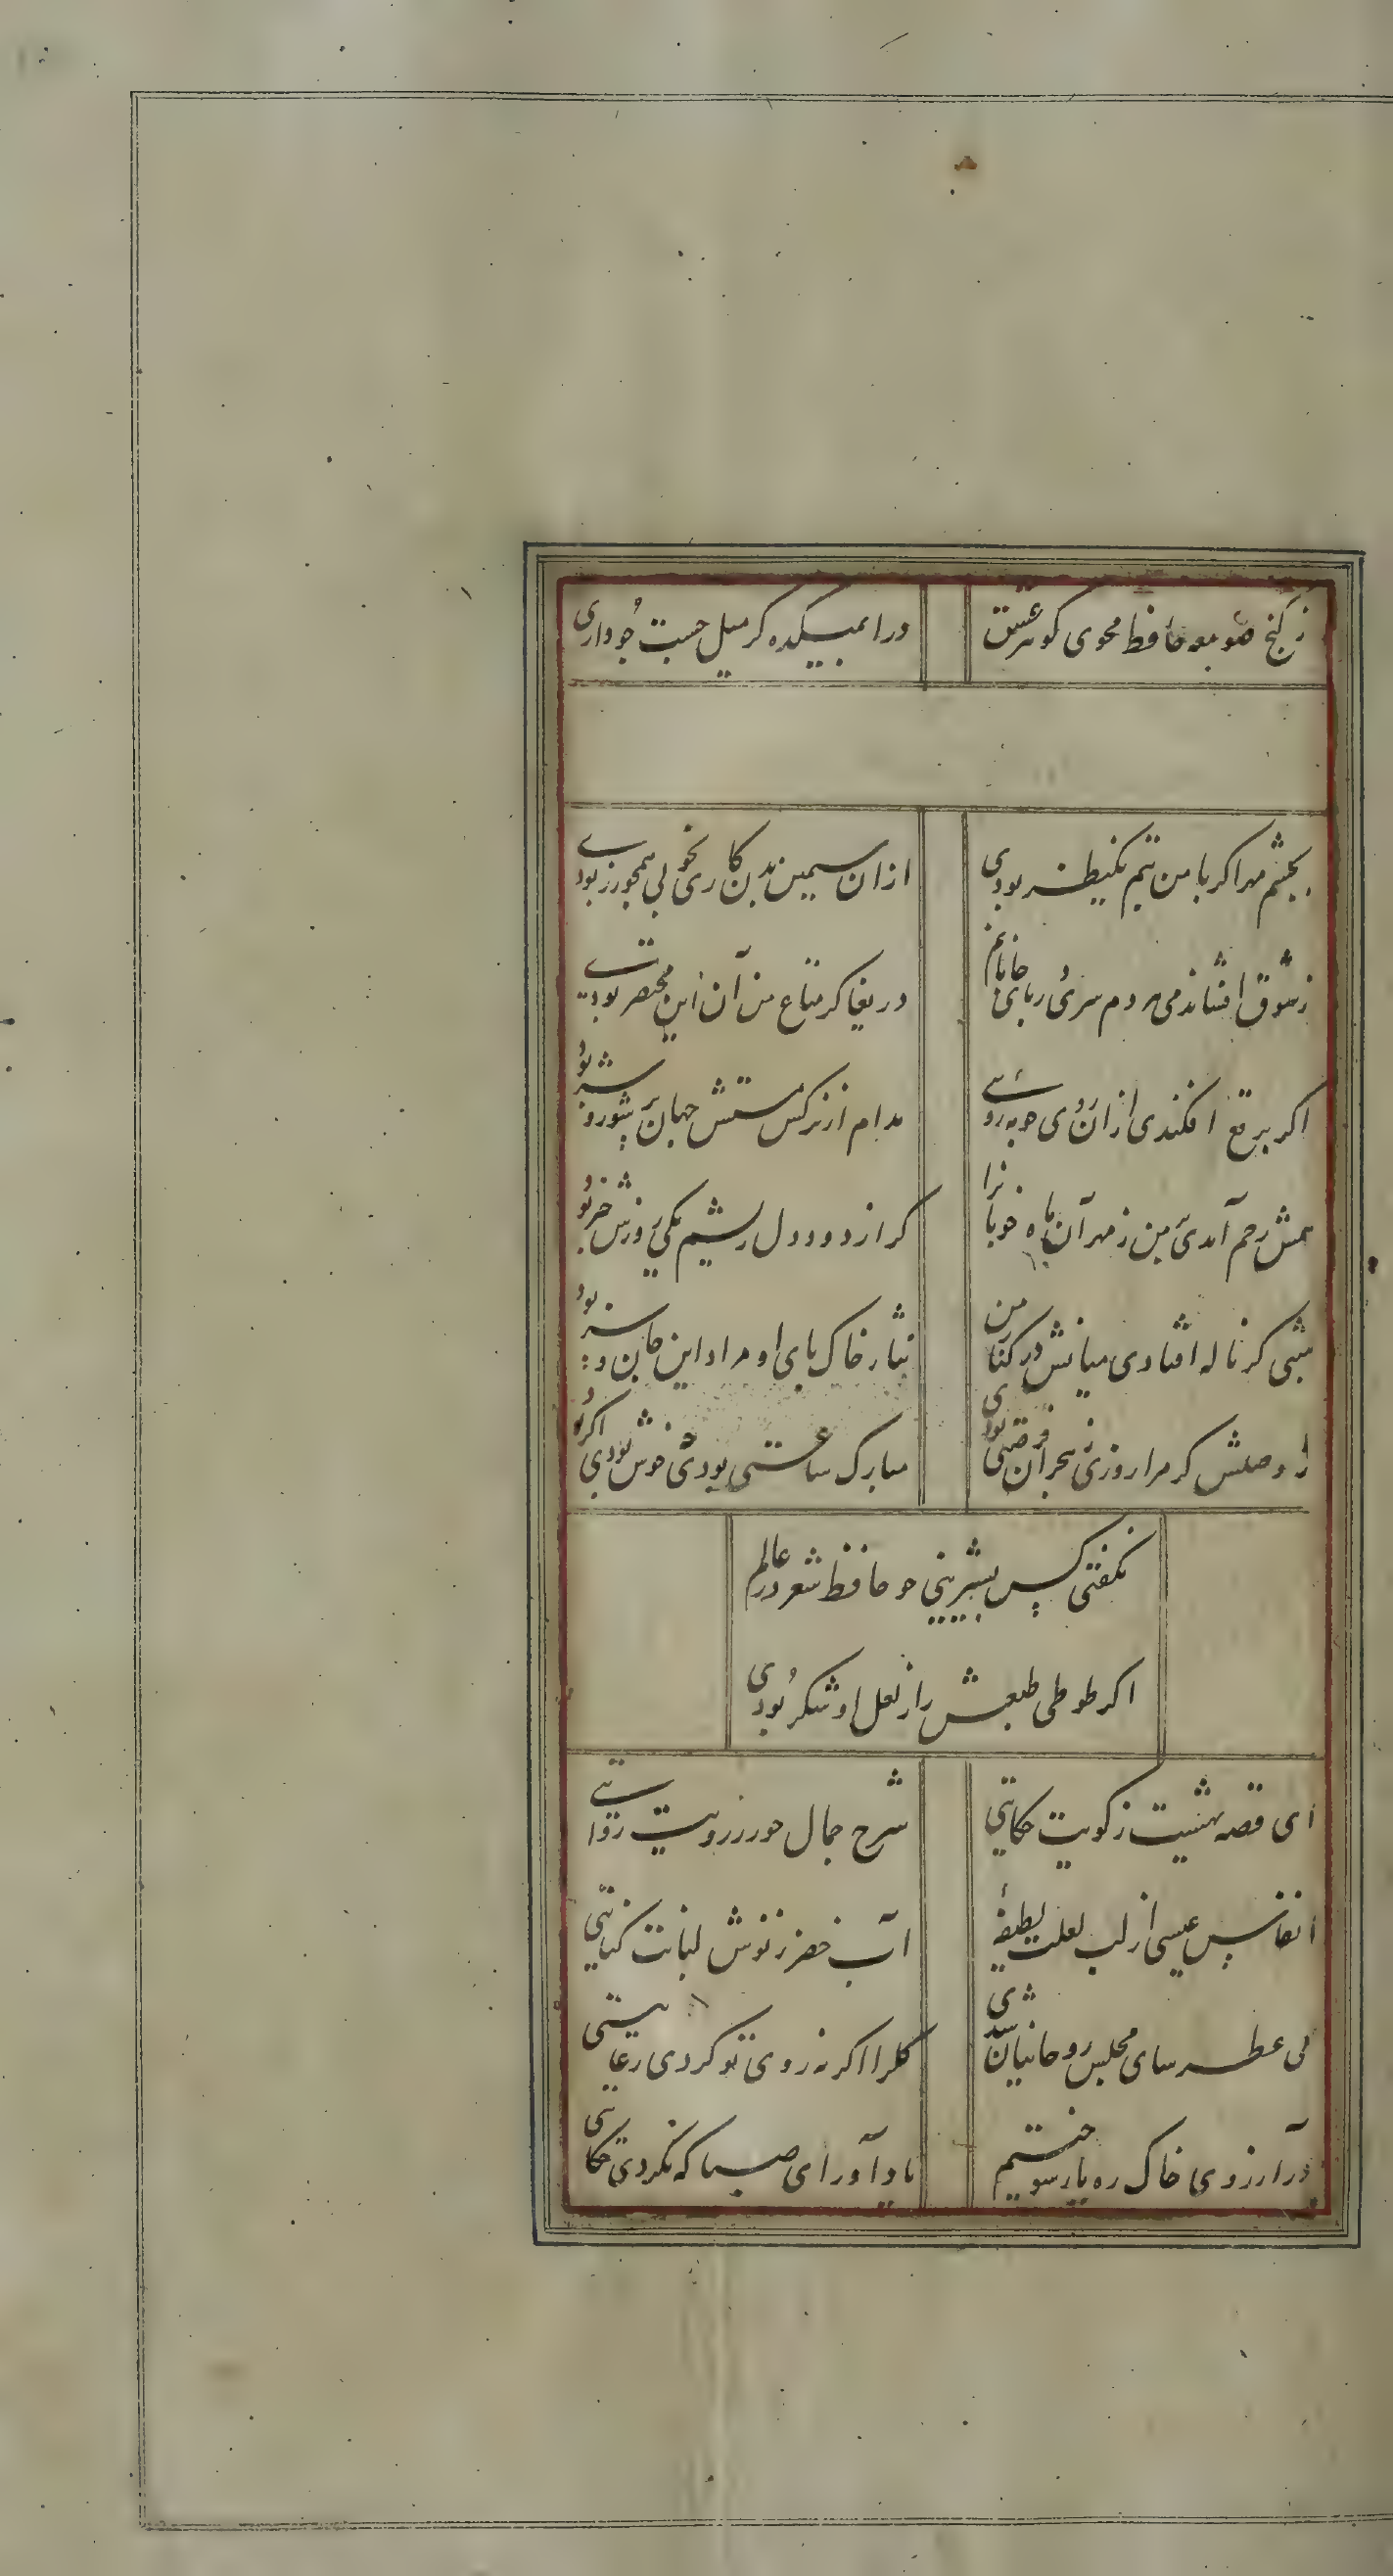 ز کنج صومعه حافظ مجوی گوهر عشق
درا بمیکده گر میل جست جو داری
بچشم مهر اگر با من مهم یکنظر بودی
از ان سیمین بدن کارم بخوبی همچو زر بودی
ز شوق افشاندمی هر دم سری در پای جانانم
دریغا گر متاع من نه آن این مختصر بودی
اگر برقع افکندی ازان روی چو مه روی
مدام از نرگس مستش جهان پر شور و شر بودی
همش رحم آمدی بر من ز مهر آن ماه خوبانرا
گر از درد دل ریشم یکی روزش خبر بودی
شبی گر ناله افتادی میانش در کنار من
نثار خاک پای او مراد این جان و سر بودی
ز وصلش گر مرا روزی ز هجران فرصتی بودی
مبارک ساعتی بودی چه خوش بودی اگر بودی
نگفتی کس بشیرینی چو حافظ شعر در عالم
اگر طوطی طبعش را ز لعل او شکر بودی
ای قصه بهشت ز کویت حکایتی
شرح جمال حور ز رویت روایتی
انفاس عیسی از لب لعلت لطیفهٔ
آب خضر ز نوش لبانت کنایتی
کی عطر سای مجلس روحانیان شدی
گلرا اگر نه روی تو کردی رعایتی
در آرزوی خاک ره یار سوختیم
یاد آور ای صبا که نکردی حکایتی